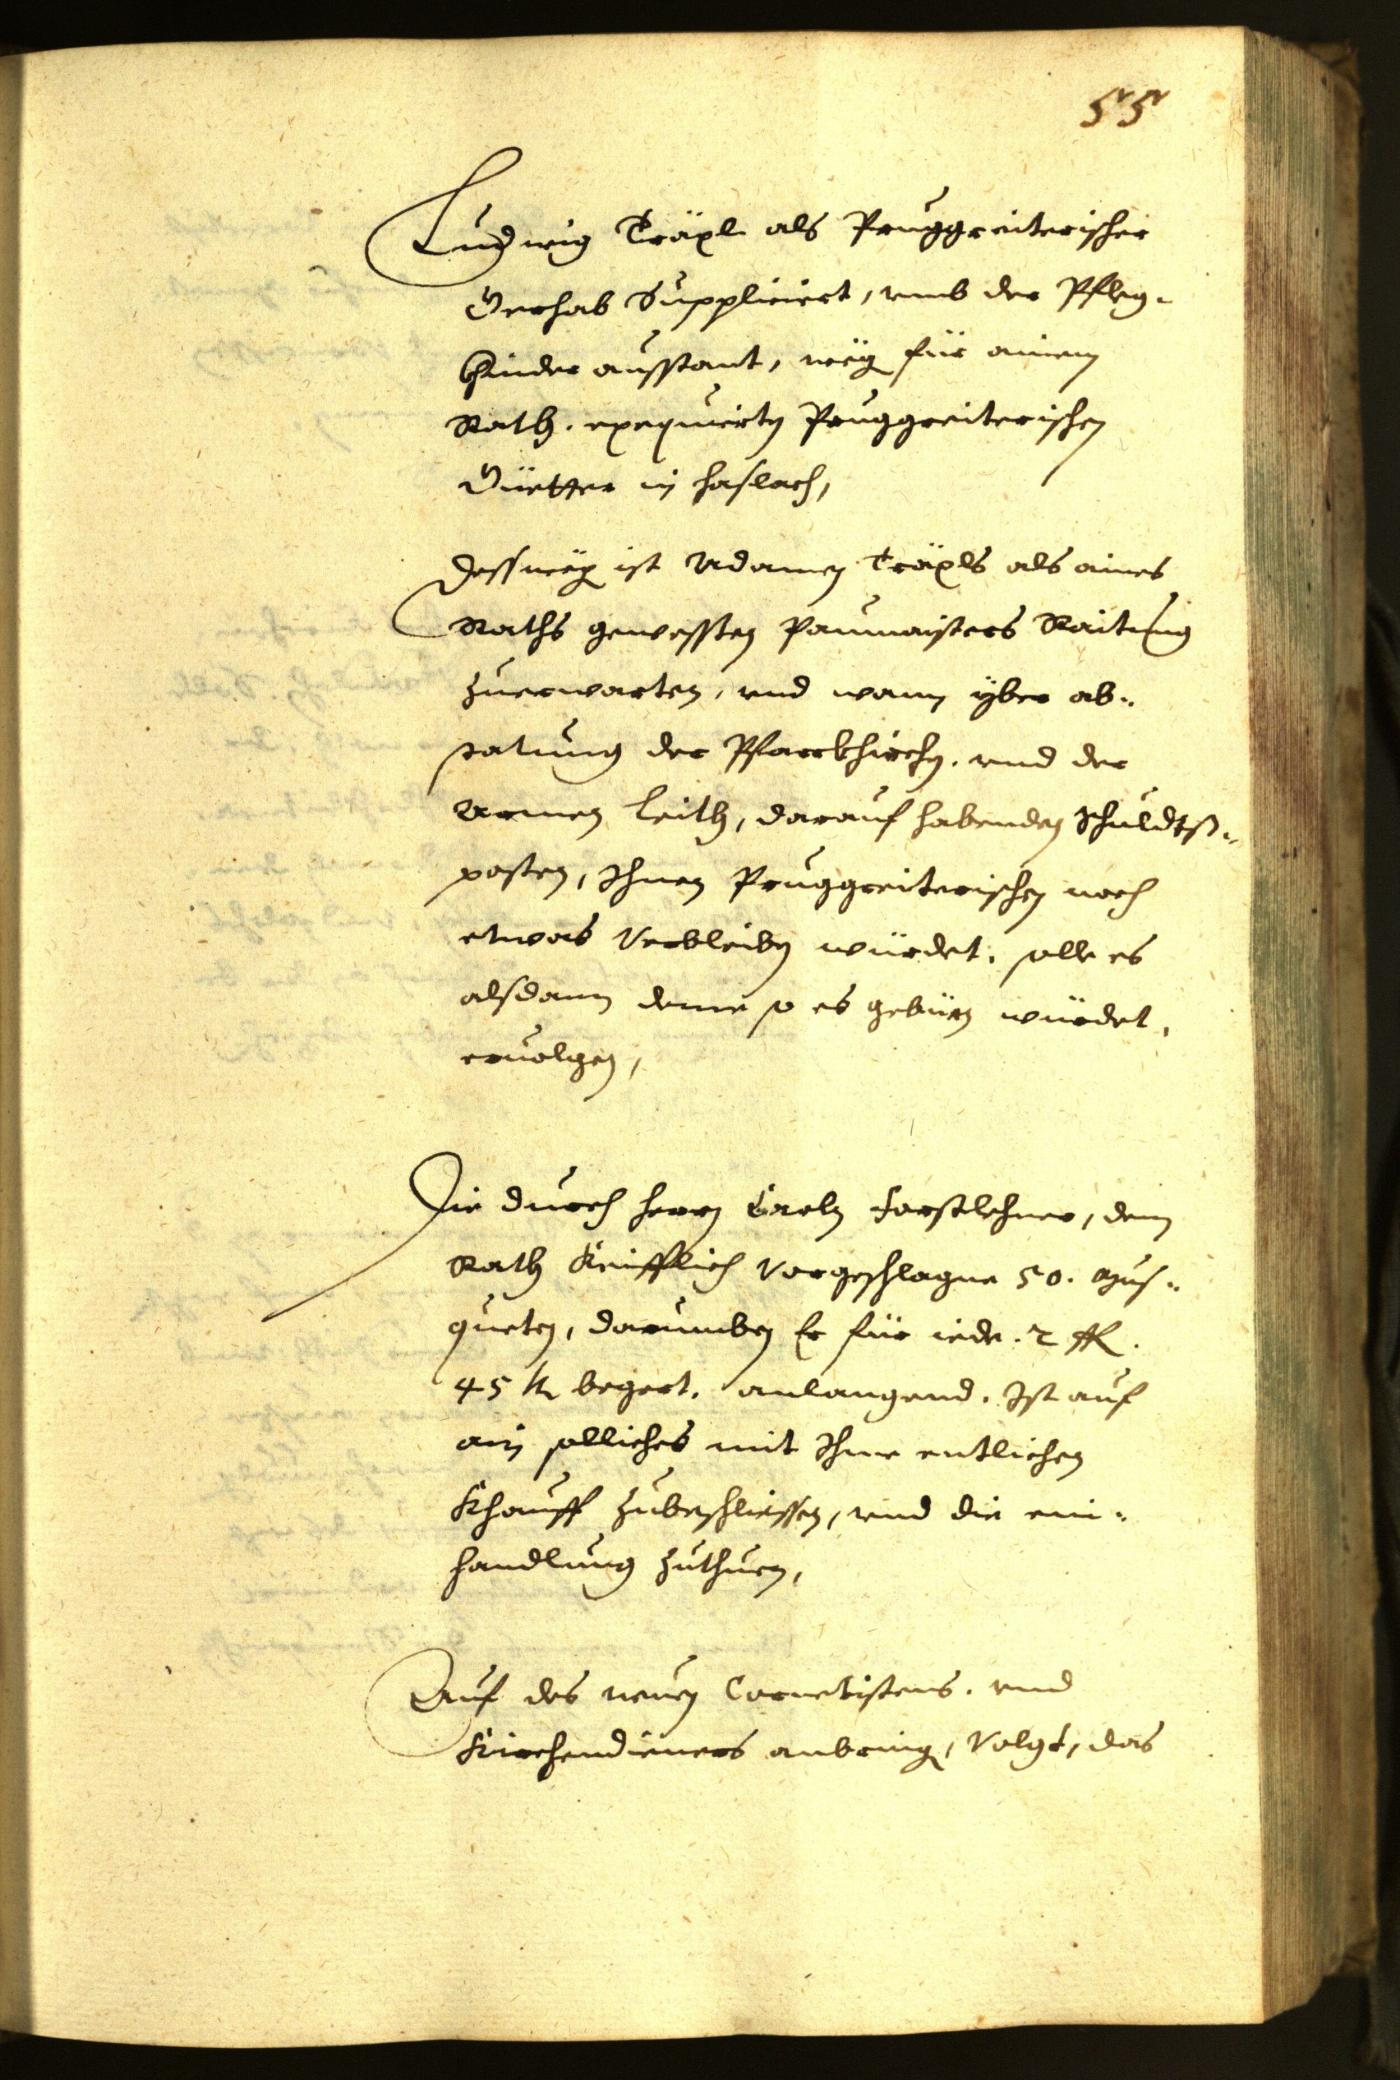 55
Ludwig Träxl als Pruggreiterischer
Gerhab Suppliciert, umb der Pfleg-
khinder ausstant, weg für ainem
Rath. exequierten Pruggreiterischen
Güetter in Haslach,
Dessweg ist Adamen Träxls als aines
Raths gewessten Paumaisters Raitung
zuerwarten, und wann yber ab-
statung der Pfarrkhirchen. und der
Armen Leith, darauf habenden Schuldts-
posten, Ihnen Pruggreiterischen noch
etwas Verbleiben würdet, solle es
alsdann deme so es gebürn würdet,
ervolgen,
Die durch Herrn Carln Forstlehner, dem
Rath Keifflich Vorgeschlagne 50. Mus-
queten, darumben Er für iede. 2 fl.
45 kr begert. anlangend. Ist auf
ain solliches mit Ihme entlichen
Khauff zubeschliessen, und die ein-
handlung zuthuen,
Auf des neuen Cornetistens. und
Kirchendieners anbring, Volgt, das